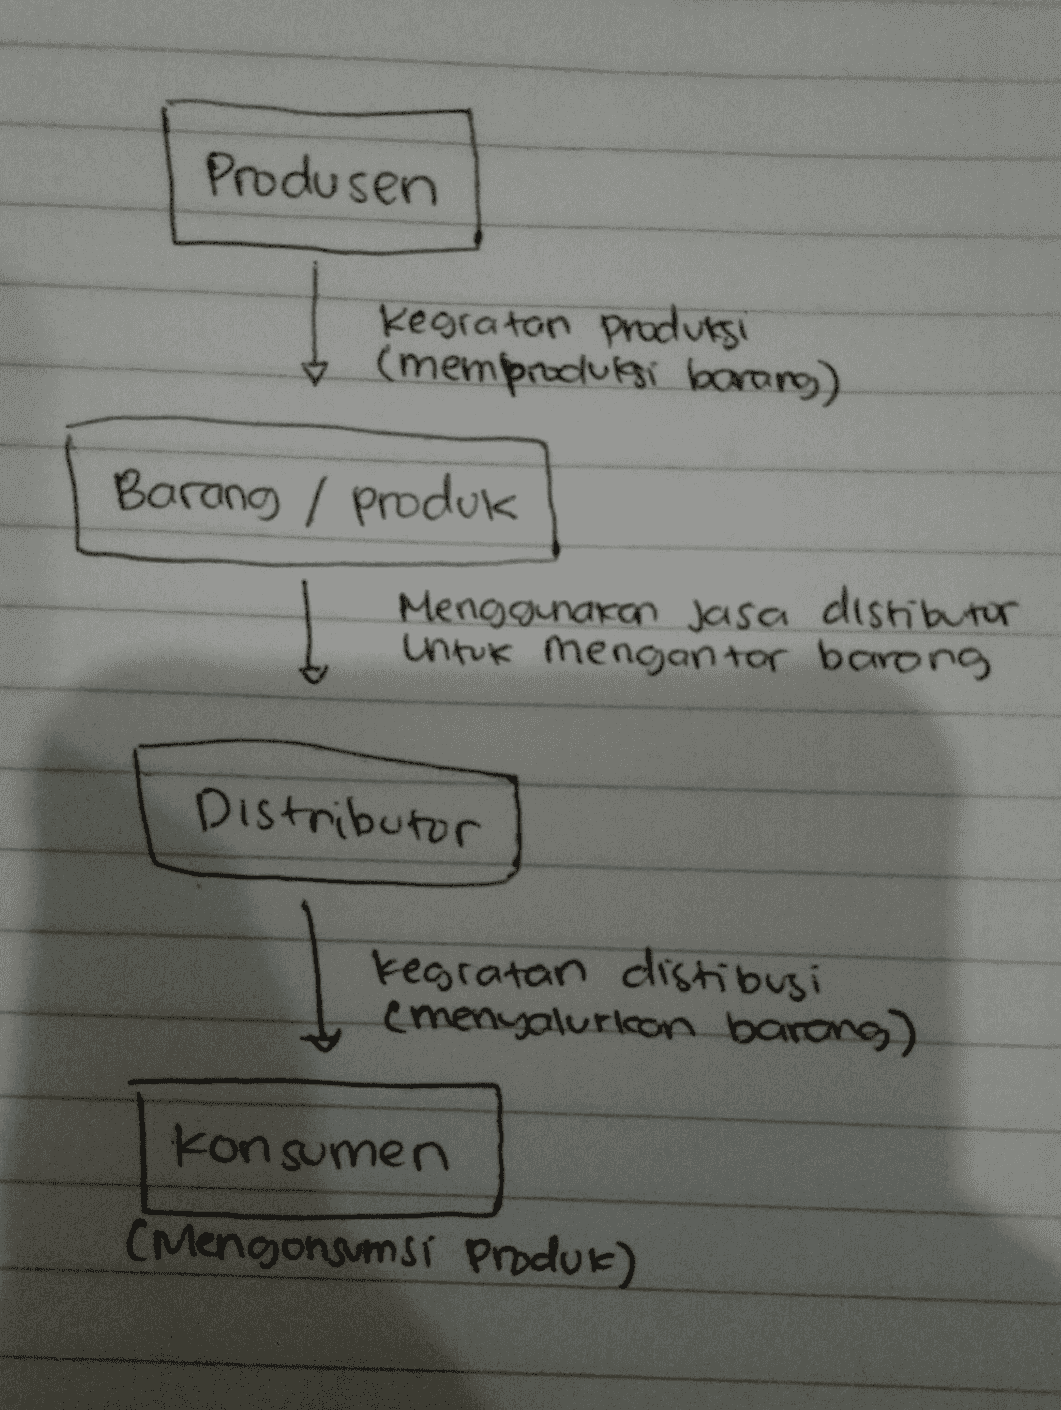 Produsen
kegiatan produksi
(memproduksi barang)
Barang / produk
Menggunakan jasa distibutor
untuk mengantar barang
Distributor
kegiatan distibusi
(menyalurkan barang)
konsumen
(Mengonsumsi produk)